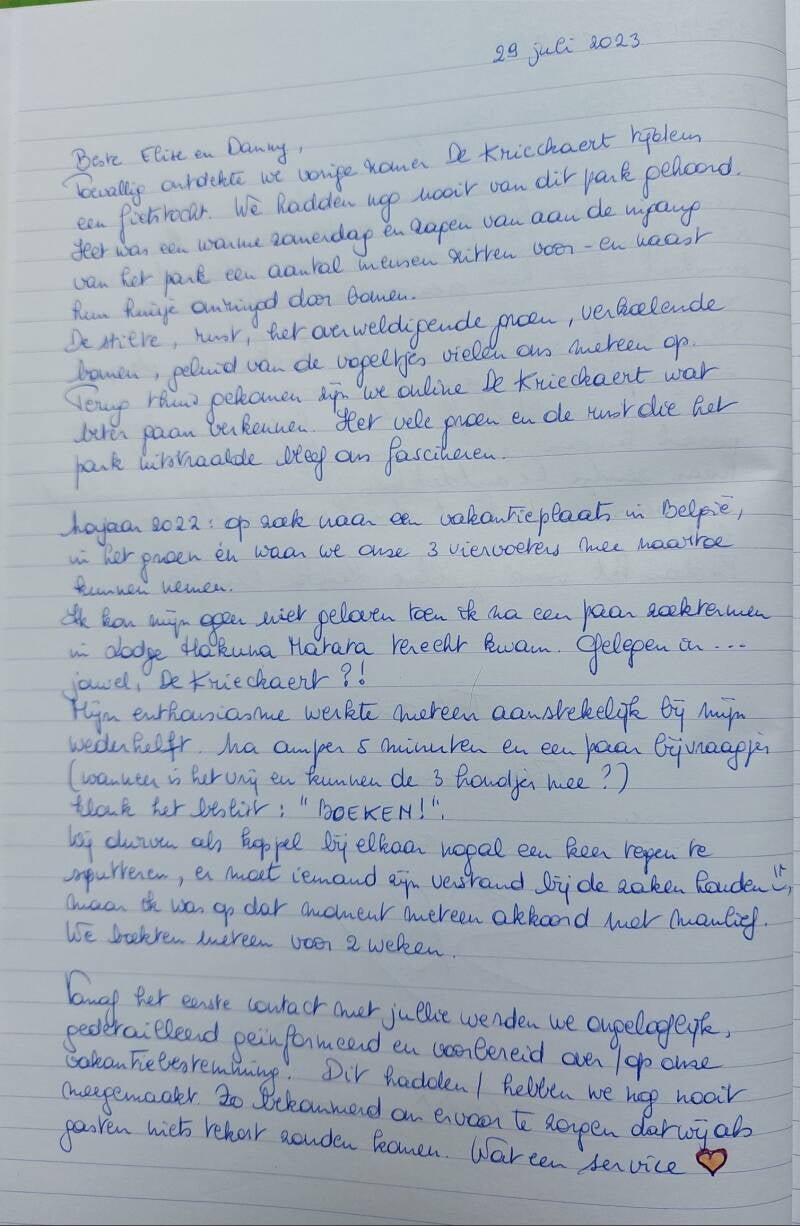 29 juli 2023
Beste Elise en Danny,
Toevallig ontdekte we vorige zomer De Krieckaert tijdens
een fietstocht. We hadden nog nooit van dit park gehoord.
Het was een warme zomerdag en zagen van aan de ingang
van het park een aantal mensen zitten voor- en naast
hun huisje omringd door bomen.
De stilte, rust, het overweldigende groen, verkoelende
bomen, geluid van de vogeltjes vielen ons meteen op.
Terug thuis gekomen zijn we online De Krieckaert wat
beter gaan verkennen. Het vele groen en de rust die het
park uitstraalde bleef ons fascineren.
Najaar 2022: op zoek naar een vakantieplaats in België,
in het groen én waar we onze 3 viervoeters mee naartoe
kunnen nemen.
Ik kon mijn ogen niet geloven toen ik na een paar zoektermen
in lodge Hakuna Matata terecht kwam. Gelegen in ...
jawel, De Krieckaert?!
Mijn enthousiasme werkte meteen aanstekelijk bij mijn
wederhelft. Na amper 5 minuten en een paar bijvraagjes
(wanneer is het vrij en kunnen de 3 hondjes mee?)
klonk het beslist: "BOEKEN!".
Wij durven als koppel bij elkaar nogal een keer tegen te
sputteren, er moet iemand zijn verstand bij de zaken houden,
maar ik was op dat moment meteen akkoord met manlief.
We boekten meteen voor 2 weken.
Vanaf het eerste contact met jullie werden we ongelooflijk,
gedetailleerd geïnformeerd en voorbereid over/op onze
vakantiebestemming. Dit hadden/hebben we nog nooit
meegemaakt. Zo bekommerd om ervoor te zorgen dat wij als
gasten niets tekort zouden komen. Wat een service ♥